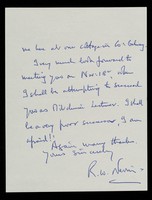 we have at our
I very much look forward to
meeting you on Nov. 18th, when
I shall be attempting to succeed
you as Mitchiner Lecturer. I shall
be a very poor successor, I am
afraid!
Again many thanks.
Yours sincerely
R. W.